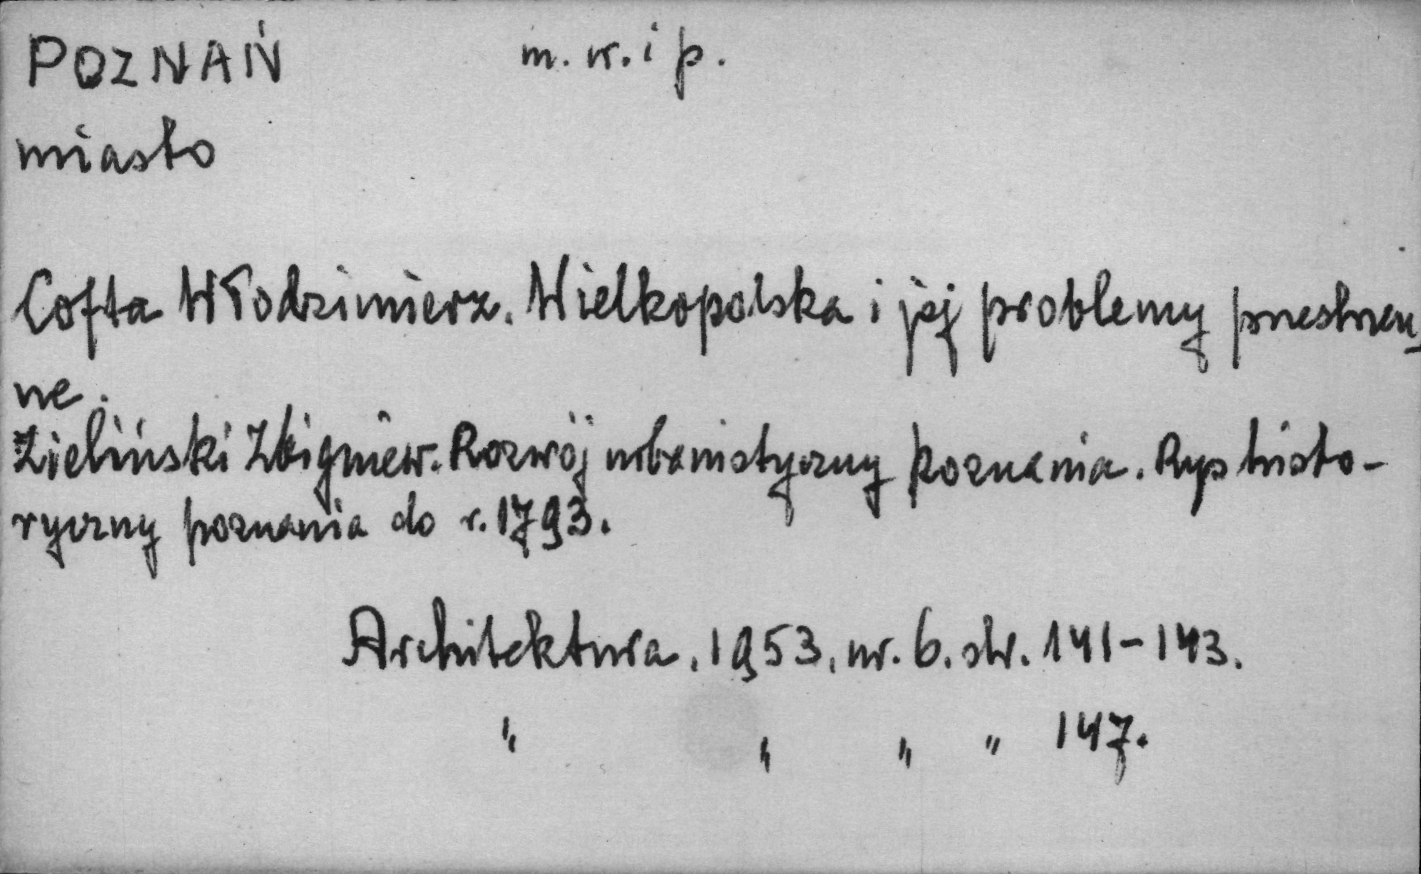 POZNAŃ m. w. i p.
miasto
Cofta Włodzimierz. Wielkopolska i jej problemy przestrzen-
ne.
Zieliński Zbigniew. Rozwój urbanistyczny Poznania. Rys histo-
ryczny poznania do r. 1793.
Architektura, 1953, nr. 6. str. 141-143.
" " " " 147.